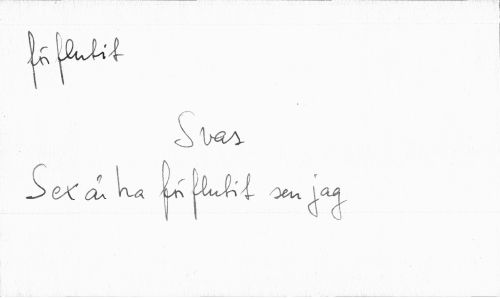 förflutit
Svas
Sex år ha förflutit sen jag